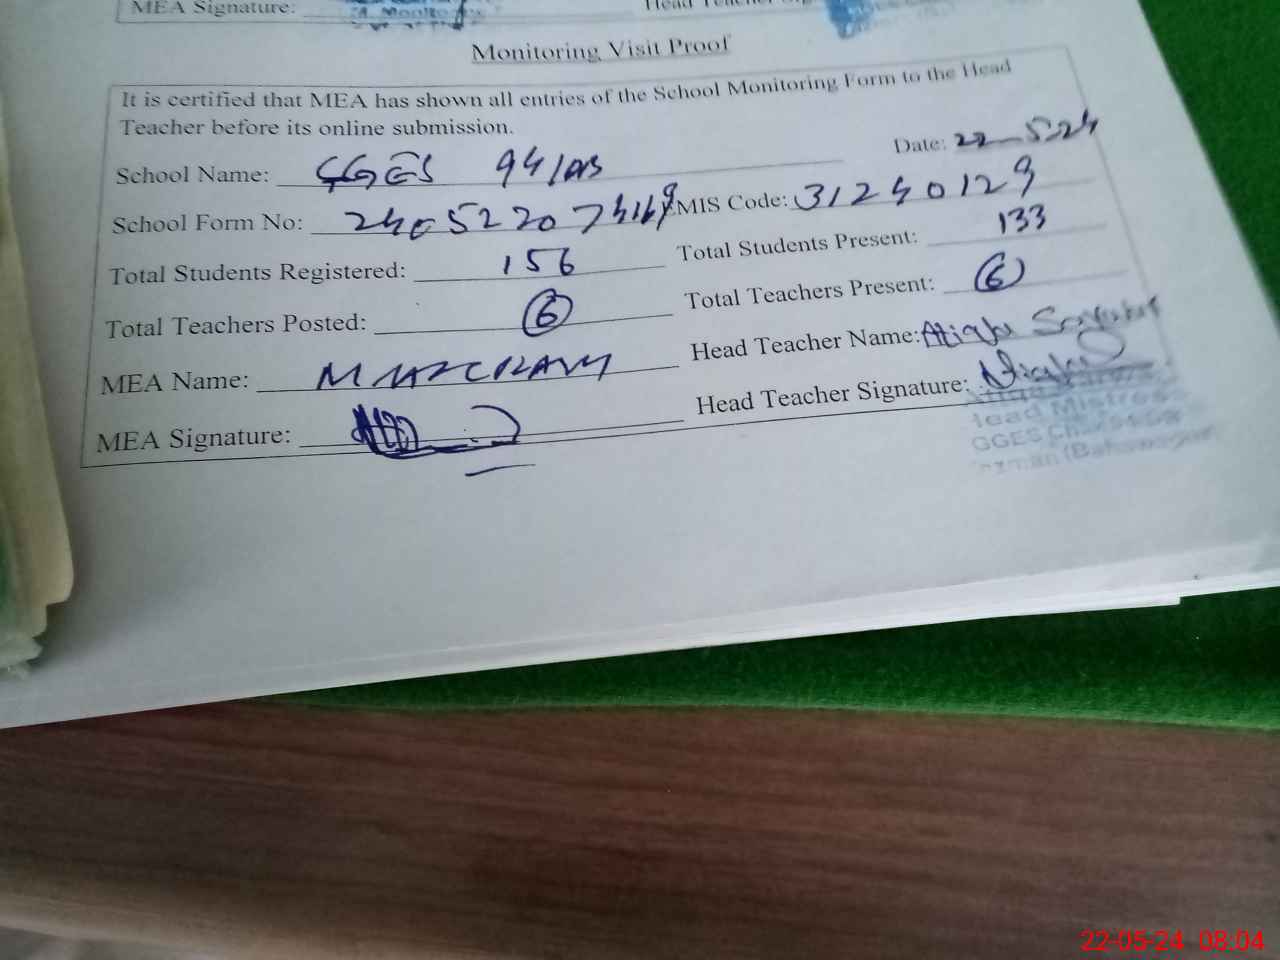 MEA Signature: Head Teacher
Monitoring Visit Proof
It is certified that MEA has shown all entries of the School Monitoring Form to the Head
Teacher before its online submission.
Date: 22-5-24
School Name: GGES 94/DB
School Form No: EMIS Code: 31240129
Total Students Registered: 156 Total Students Present: 133
Total Teachers Posted: 6 Total Teachers Present: 6
MEA Name: Head Teacher Name:
MEA Signature: Head Teacher Signature:
Head Mistress
GGES
22-05-24 08:04